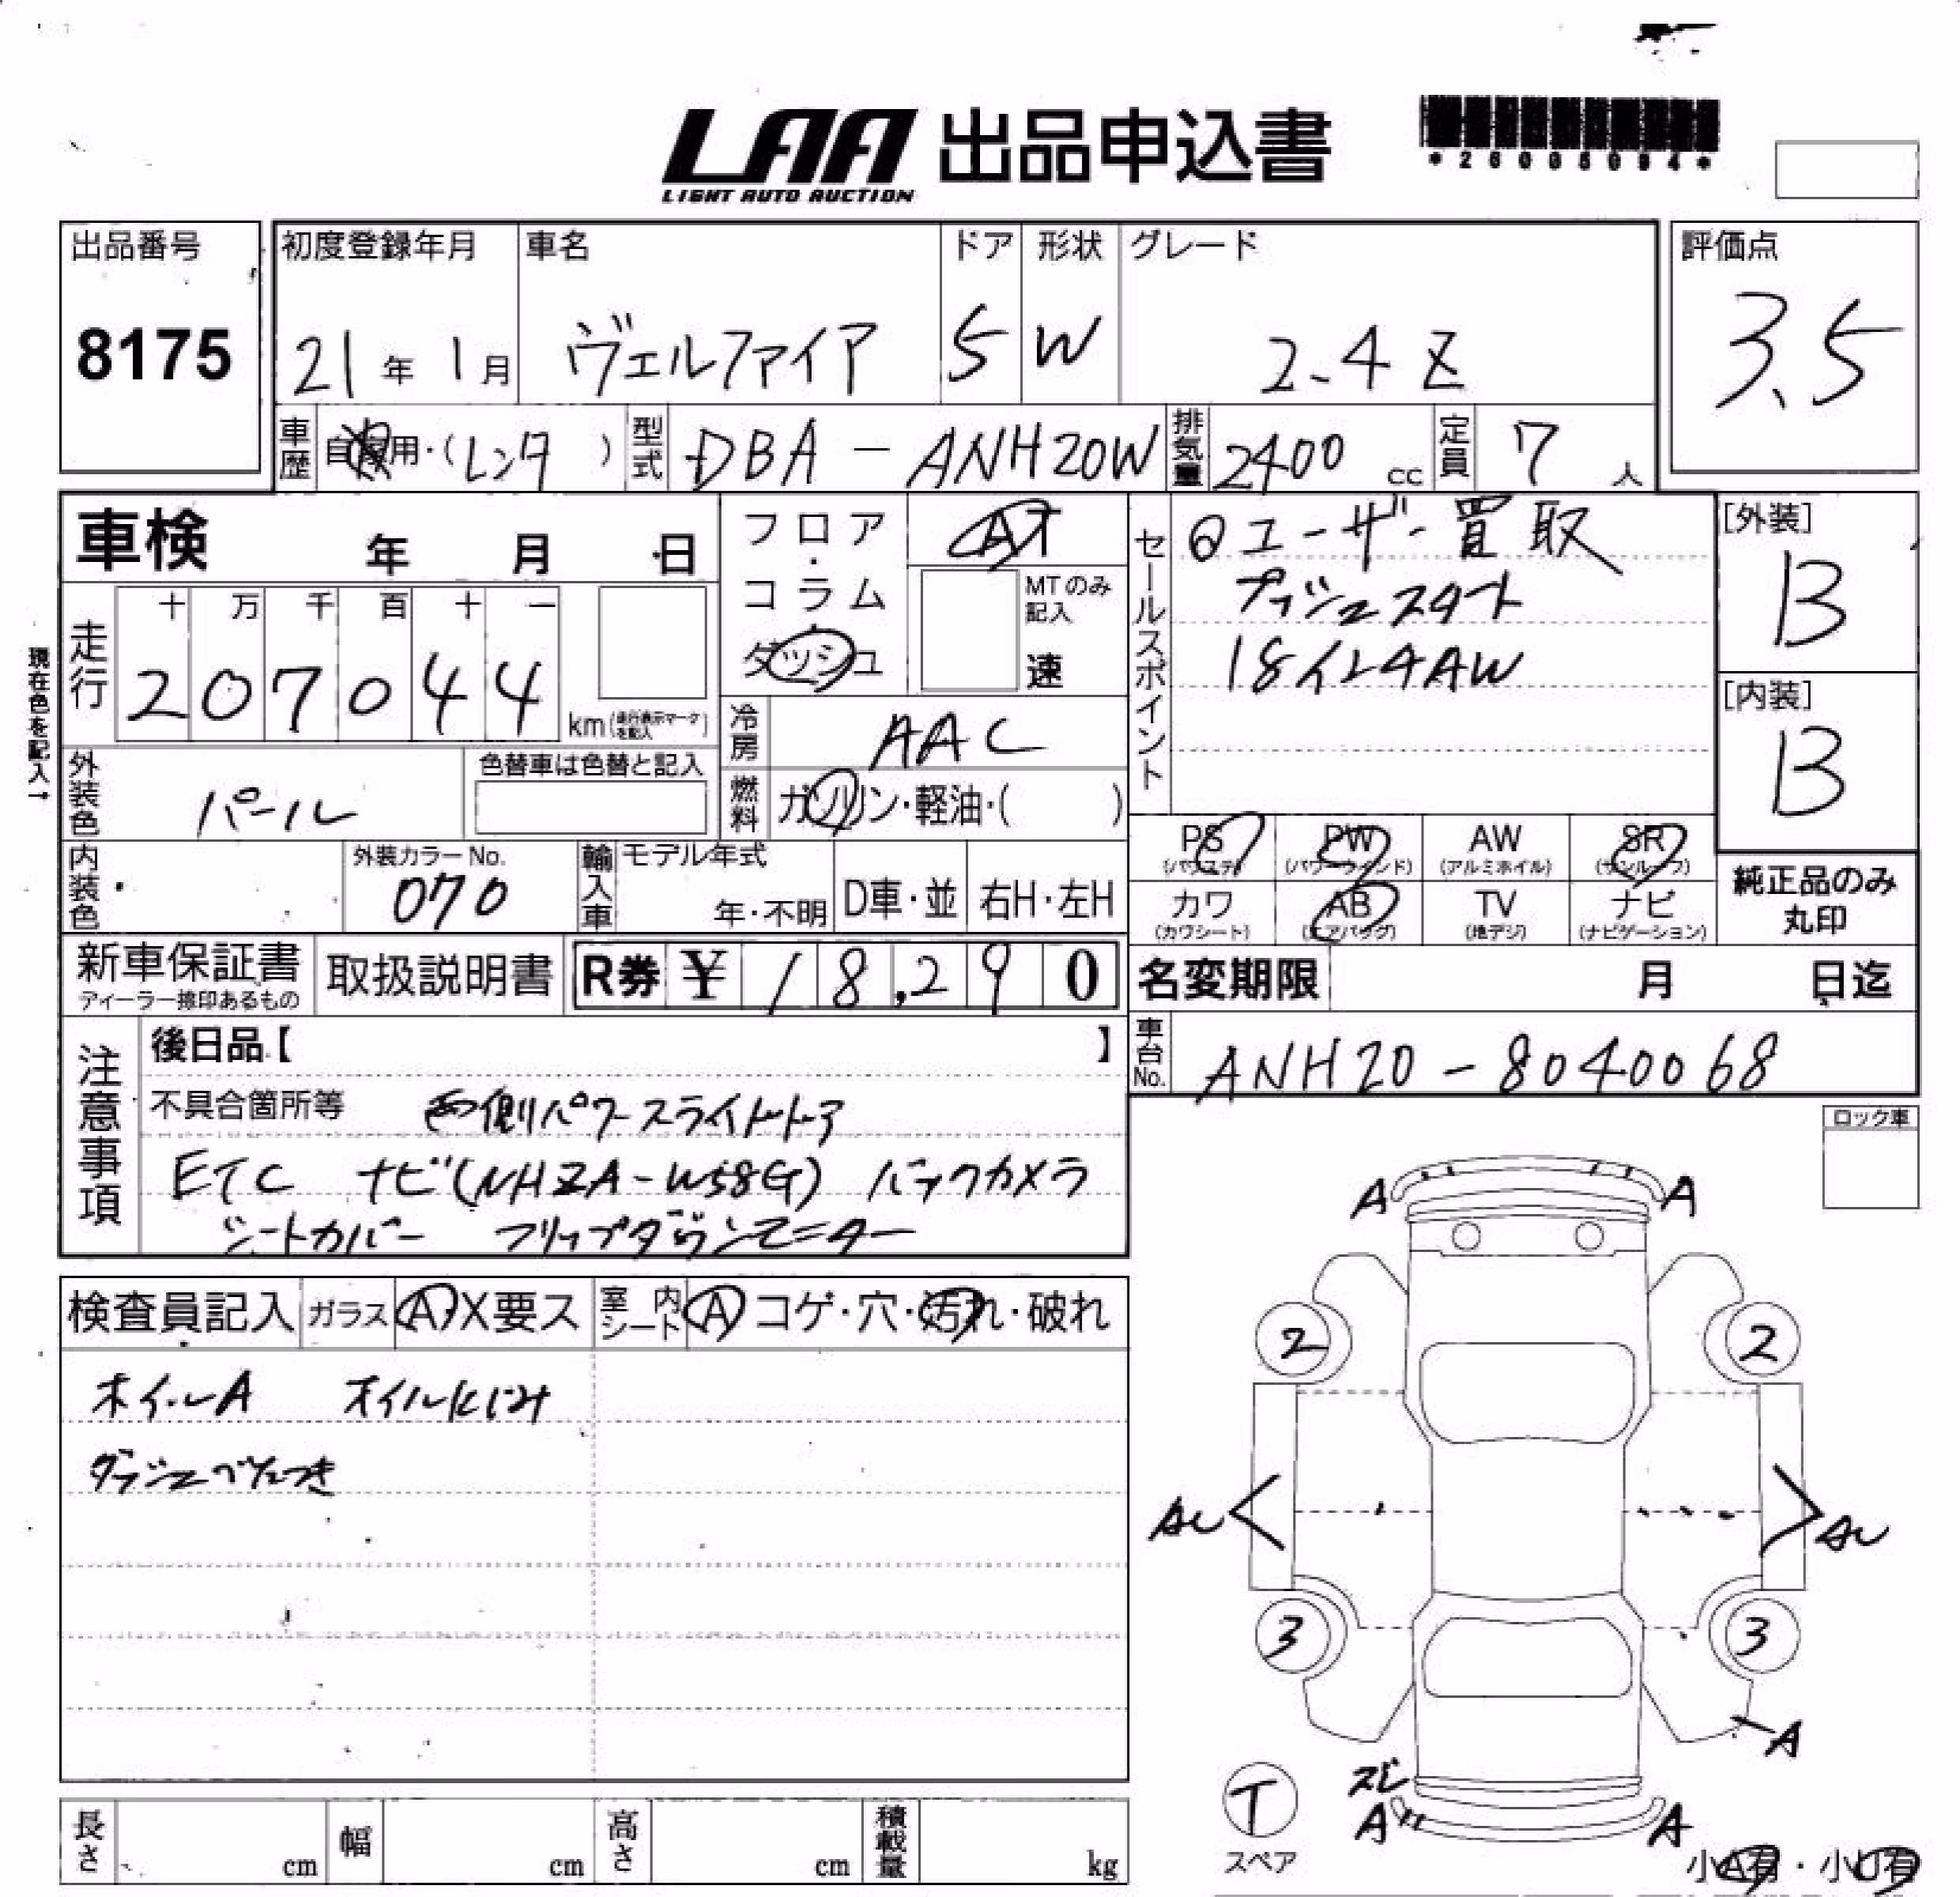 LAA 出品申込書
LIGHT AUTO AUCTION
*26005094*
出品番号
8175
初度登録年月
21年 1月
車名
ヴェルファイア
ドア
5
形状
W
グレード
2.4 Z
評価点
3.5
車歴
自家用・(レンタ )
型式
DBA-ANH20W
排気量
2400 cc
定員
7 人
車検 年 月 日
フロア・コラム・ダッシュ
AT
MTのみ記入
速
セールスポイント
◎ユーザー買取
プッシュスタート
18インチAW
[外装]
B
[内装]
B
現在色を記入→
走行
十 万 千 百 十 一
2 0 7 0 4 4
km(走行表示マークを記入)
冷房
AAC
燃料
ガソリン・軽油・( )
外装色
パール
色替車は色替と記入
内装色
外装カラーNo.
070
輸入車
モデル年式
年・不明
D車・並
右H・左H
PS
(パワステ)
PW
(パワーウィンド)
AW
(アルミホイル)
SR
(サンルーフ)
カワ
(カワシート)
AB
(エアバッグ)
TV
(地デジ)
ナビ
(ナビゲーション)
純正品のみ
丸印
新車保証書
ディーラー捺印あるもの
取扱説明書
R券 ¥18,290
名変期限 月 日迄
車台No.
ANH20-8040068
注意事項
後日品【 】
不具合箇所等 両側パワースライドドア
ETC ナビ(NHZA-W58G) バックカメラ
シートカバー フリップダウンモニター
ロック車
検査員記入
ガラス A・X要ス
室内シート A コゲ・穴・汚れ・破れ
ホイルA オイルにじみ
ダッシュベタつき
A A
2 2
AU AU
3 3
A
T
スペア
スレ
A A
小A有・小U有
長さ cm
幅 cm
高さ cm
積載量 kg